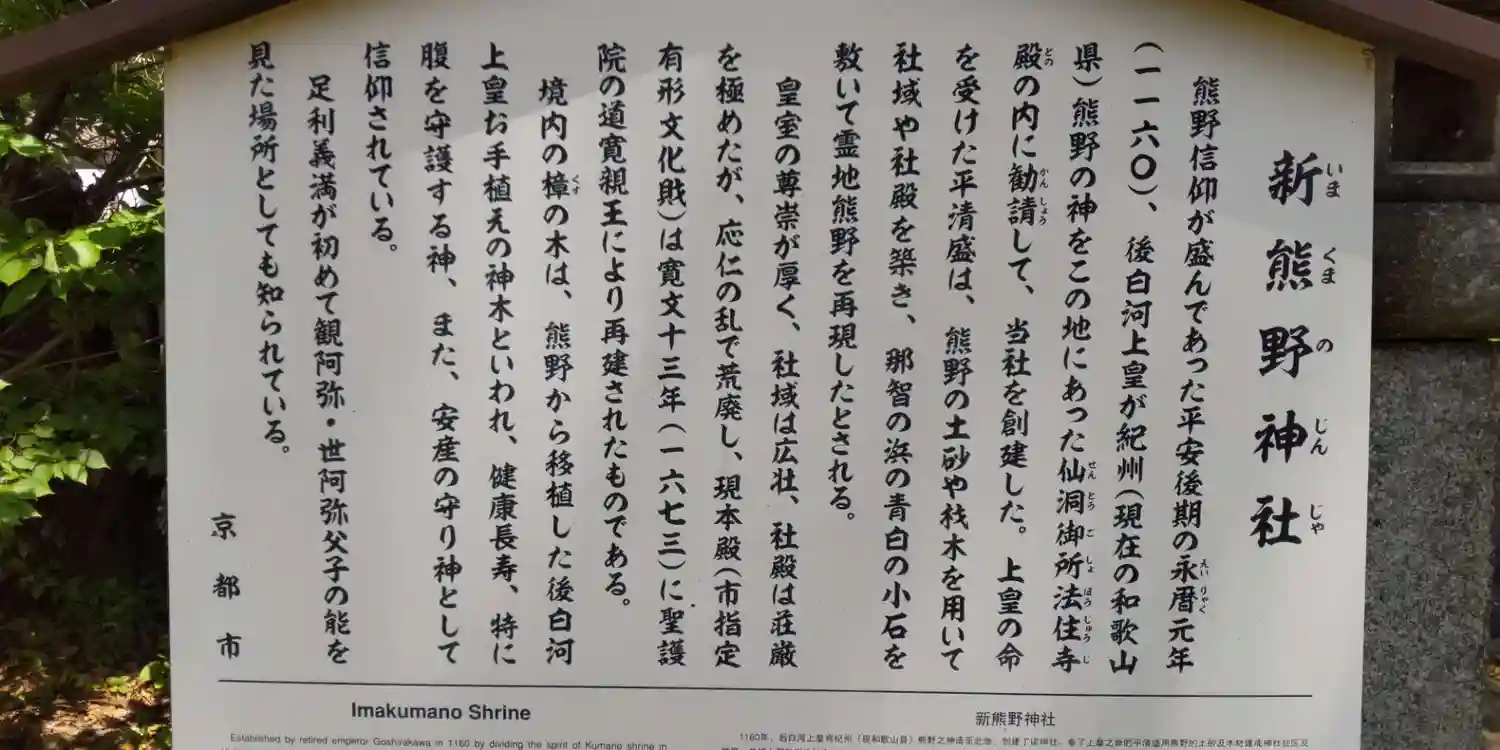 新熊野神社
いまくまのじんじゃ
熊野信仰が盛んであった平安後期の永暦元年
えいりゃく
(一一六〇)、後白河上皇が紀州(現在の和歌山
県)熊野の神をこの地にあった仙洞御所法住寺
せんとうごしょほうじゅうじ
殿の内に勧請して、当社を創建した。上皇の命
との かんしょう
を受けた平清盛は、熊野の土砂や材木を用いて
社域や社殿を築き、那智の浜の青白の小石を
敷いて霊地熊野を再現したとされる。
皇室の尊崇が厚く、社域は広壮、社殿は荘厳
を極めたが、応仁の乱で荒廃し、現本殿(市指定
有形文化財)は寛文十三年(一六七三)に聖護
院の道寛親王により再建されたものである。
境内の樟の木は、熊野から移植した後白河
くす
上皇お手植えの神木といわれ、健康長寿、特に
腹を守護する神、また、安産の守り神として
信仰されている。
足利義満が初めて観阿弥・世阿弥父子の能を
見た場所としても知られている。
京都市
Imakumano Shrine
Established by retired emperor Goshirakawa in 1160 by dividing the spirit of Kumano shrine in
新熊野神社
1160年，后白河上皇将纪州（现和歌山县）熊野之神请至此地，创建了该神社。奉了上皇之命的平清盛用熊野的土砂及木材建成神社社区及